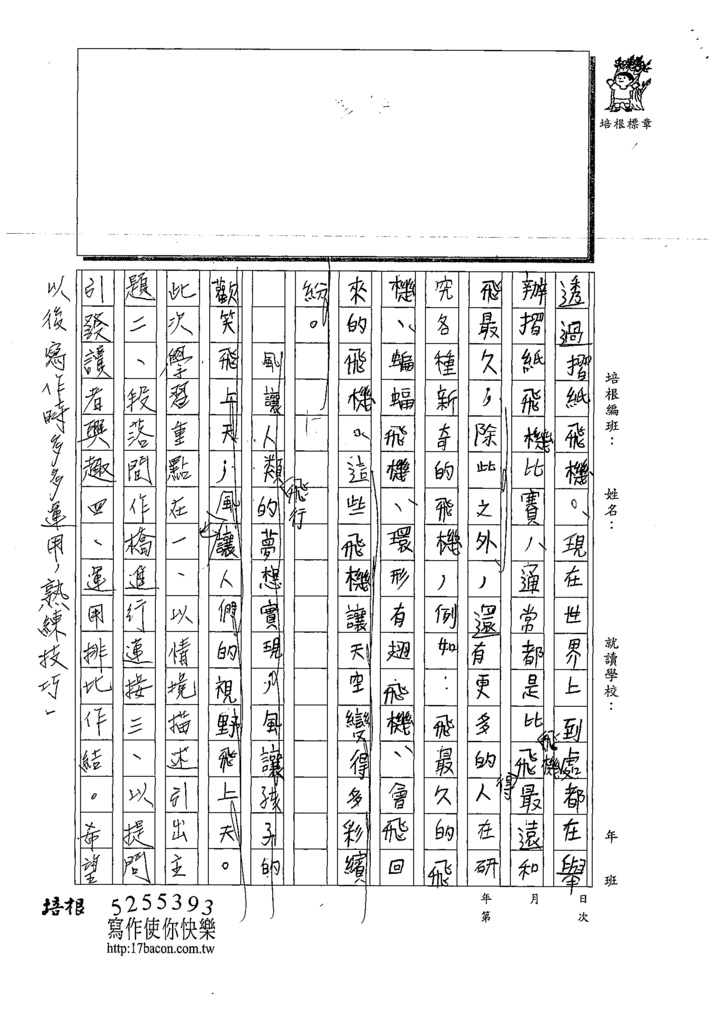 培根標章
培根編班：
姓名：
就讀學校：
年
班
日
次
月
年
第
透過摺紙飛機。現在世界上到處都在舉
辦摺紙飛機比賽，通常都是比飛機飛得最遠和
飛最久，除此之外，還有更多的人在研
究各種新奇的飛機，例如：飛最久的飛
機、蝙蝠飛機、環形有翅飛機、會飛回
來的飛機。這些飛機讓天空變得多彩繽
紛。
風讓人類飛行的夢想實現，風讓孩子的
歡笑飛上天，風讓人們的視野飛上天。
此次學習重點在一、以情境描述引出主
題二、段落間作橋進行連接三、以提問
引發讀者興趣四、運用排比作結。希望
以後寫作時多多運用，熟練技巧！
培根 5255393
寫作使你快樂
http:17bacon.com.tw